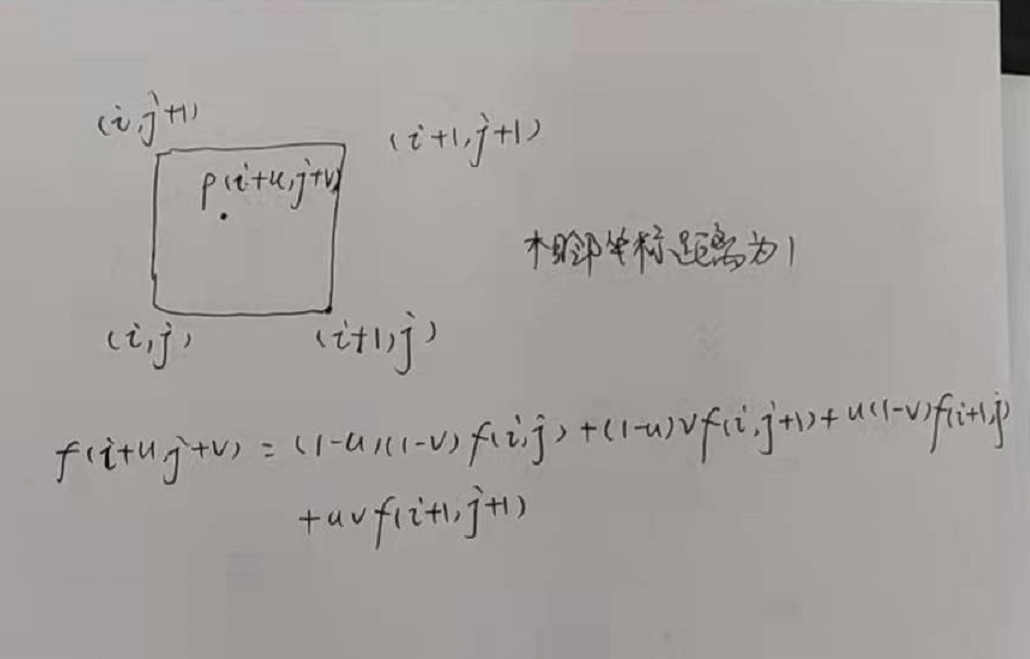 (i,j+1)
(i+1,j+1)
p(i+u,j+v)
相邻坐标距离为1
(i,j)
(i+1,j)
f(i+u,j+v) = (1-u)(1-v) f(i,j) + (1-u)v f(i,j+1) + u(1-v) f(i+1,j)
+ u v f(i+1,j+1)